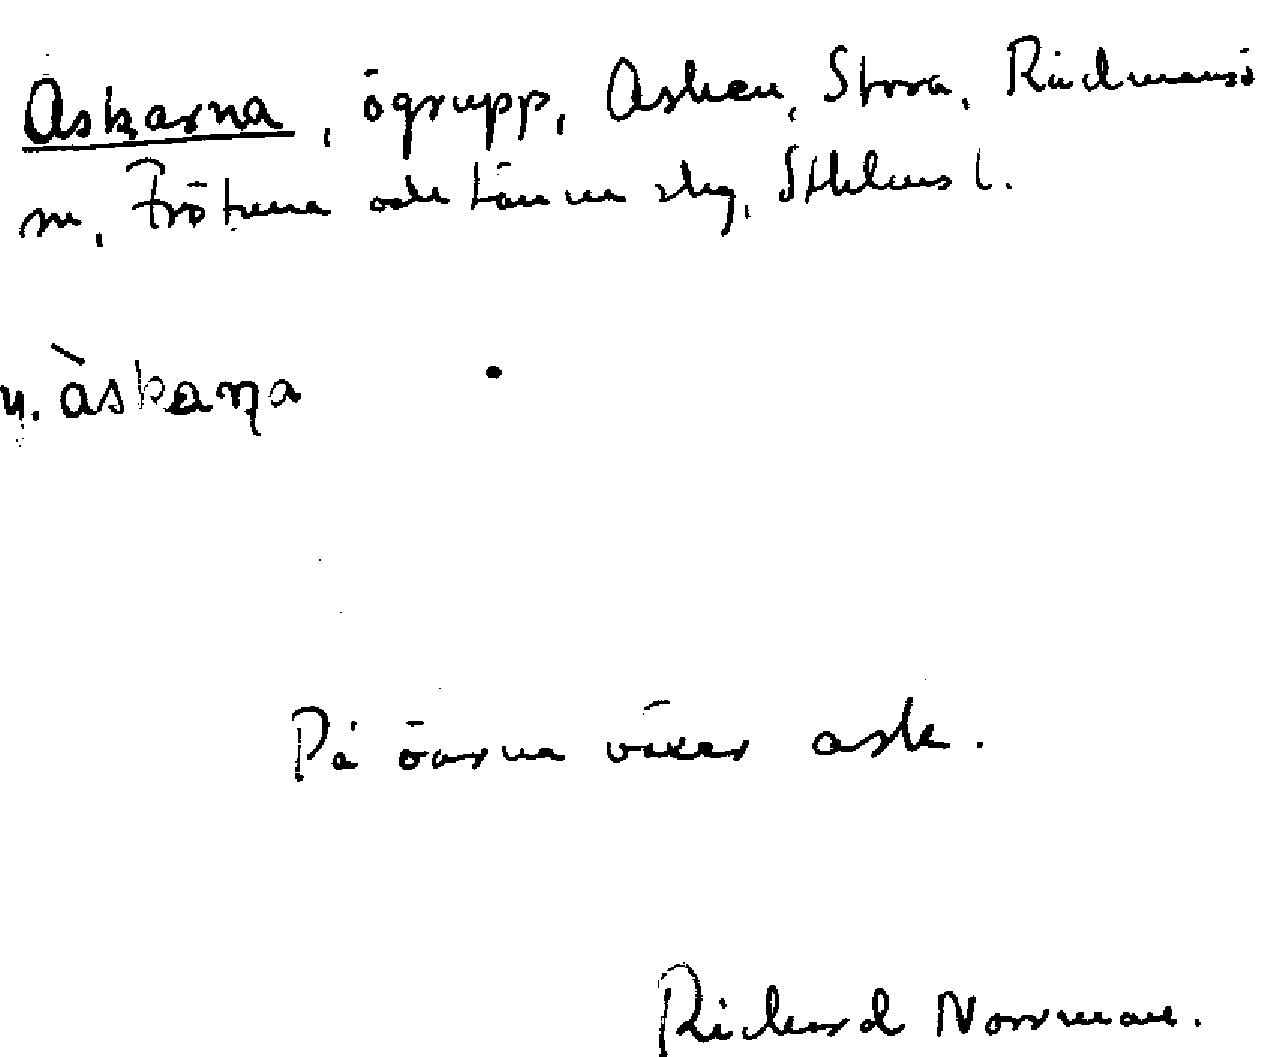 Askarna, ögrupp, Asken, Stora, Rådmansö
sn, Frötuna och Länna slg, Sthlms l.
u. àskaṇa
På öarna växer ask.
Richard Norrman.